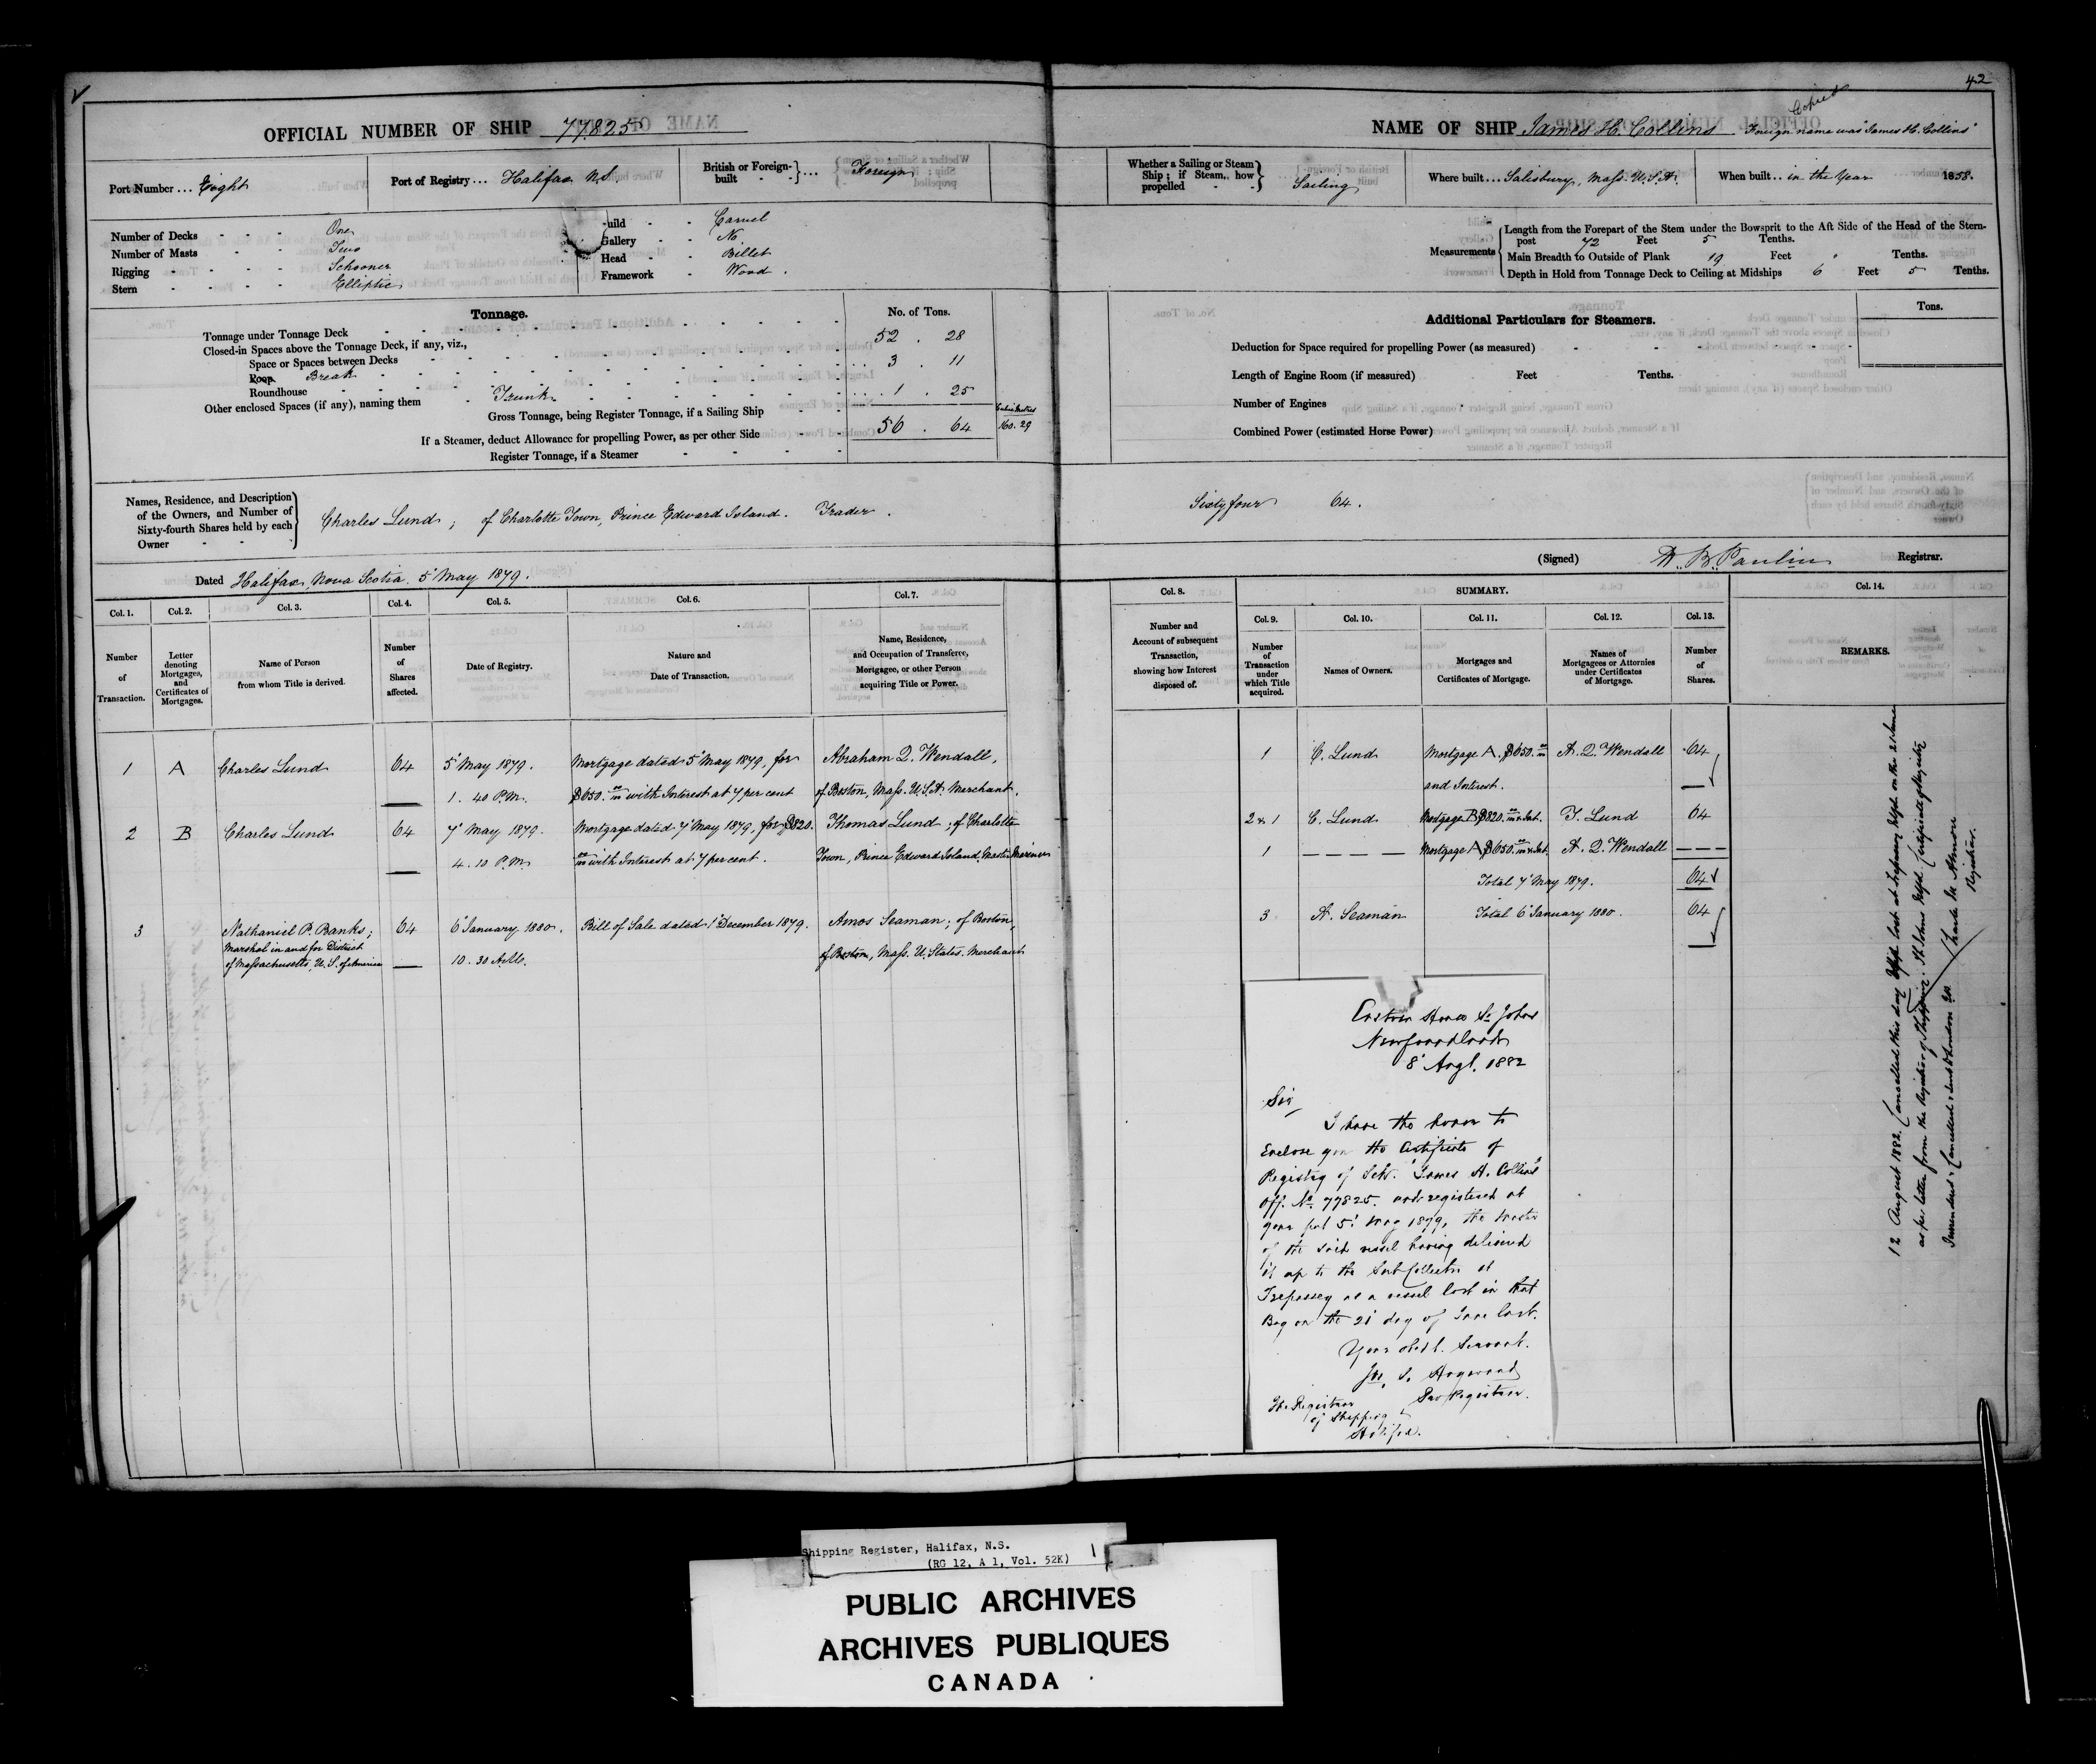 42
Copied
OFFICIAL NUMBER OF SHIP 77.825
NAME OF SHIP James H. Collins Foreign name was "James H. Collins"
Port Number ... Eight
Port of Registry ... Halifax N.S.
British or Foreign-built ... Foreign
Whether a Sailing or Steam Ship; if Steam, how propelled Sailing
Where built ... Salisbury, Mass. U.S.A.
When built .. in the Year 1858.
Number of Decks - - - One
Number of Masts - - - Two
Rigging - - - Schooner
Stern - - - Elliptic
uild - - Carvel
Gallery - - No.
Head - - Billet
Framework - Wood.
Measurements
Length from the Forepart of the Stem under the Bowsprit to the Aft Side of the Head of the Stern-
post 72 Feet 5 Tenths.
Main Breadth to Outside of Plank 19 Feet " Tenths.
Depth in Hold from Tonnage Deck to Ceiling at Midships 6 Feet 5 Tenths.
Tonnage.
No. of Tons.
Tonnage under Tonnage Deck 52 . 28
Closed-in Spaces above the Tonnage Deck, if any, viz.,
Space or Spaces between Decks
Poop Break 3 . 11
Roundhouse
Other enclosed Spaces (if any), naming them Trunk 1 . 25
Gross Tonnage, being Register Tonnage, if a Sailing Ship 56 . 64
Cubic Metres
160.29
If a Steamer, deduct Allowance for propelling Power, as per other Side
Register Tonnage, if a Steamer
Additional Particulars for Steamers.
Tons.
Deduction for Space required for propelling Power (as measured)
Length of Engine Room (if measured) Feet Tenths.
Number of Engines
Combined Power (estimated Horse Power)
Names, Residence, and Description
of the Owners, and Number of
Sixty-fourth Shares held by each
Owner
Charles Lund; of Charlotte Town, Prince Edward Island. Trader. Sixty four 64.
(Signed) W. B. Paulin Registrar.
Dated Halifax, Nova Scotia. 5 May 1879.
Col. 1. Col. 2. Col. 3. Col. 4. Col. 5. Col. 6. Col. 7.
Number of Transaction.
Letter denoting Mortgages, and Certificates of Mortgages.
Name of Person from whom Title is derived.
Number of Shares affected.
Date of Registry.
Nature and Date of Transaction.
Name, Residence, and Occupation of Transferee, Mortgagee, or other Person acquiring Title or Power.
1 A Charles Lund 64 5 May 1879. Mortgage dated 5 May 1879, for Abraham Q. Wendall,
1. 40 P.M. $650. with Interest at 7 per cent of Boston, Mass. U.S.A. Merchant.
2 B Charles Lund 64 7 May 1879. Mortgage dated 7 May 1879, for $820. Thomas Lund; of Charlotte
4. 10 P.M. with Interest at 7 per cent. Town, Prince Edward Island, Master Mariner
3 Nathaniel P. Banks; 64 6 January 1880. Bill of Sale dated 1 December 1879. Amos Seaman; of Boston,
Marshal in and for District
of Massachusetts, U.S. of America 10. 30 A.M. of Boston, Mass. U. States. Merchant
Col. 8. SUMMARY. Col. 14.
Col. 9. Col. 10. Col. 11. Col. 12. Col. 13.
Number and Account of subsequent Transaction, showing how Interest disposed of.
Number of Transaction under which Title acquired.
Names of Owners.
Mortgages and Certificates of Mortgage.
Names of Mortgagees or Attornies under Certificates of Mortgage.
Number of Shares.
REMARKS.
1 C. Lund Mortgage A. $650. A. Q. Wendall 64
and Interest.
2 & 1 C. Lund Mortgage B $820. & Int. T. Lund 64
1 - - - - Mortgage A $650. & Int. A. Q. Wendall - - -
Total 7 May 1879. 64
3 A. Seaman Total 6 January 1880. 64
Custom House St Johns
Newfoundland
8 Augt. 1882
Sir
I have the honor to
Enclose you the Certificate of
Registry of Schr. "James H. Collins"
Off. No. 77825. registered at
your port 5 May 1879, the Master
of the said vessel having delivered
it up to the Sub Collector at
Trepassey as a vessel lost in that
Bay on the 21 day of June last.
Your obedt. Servant.
The Registrar
of Shipping
Halifax.
12 August 1882. Cancelled this day lost at Trepassey Nfld on the 21 June
as per letter from the Registrar of Shipping. St Johns Nfld. Certificate of Registry
Surrendered & Cancelled & sent to London
Registrar.
Shipping Register, Halifax, N.S.
(RG 12, A 1, Vol. 52K)
1
PUBLIC ARCHIVES
ARCHIVES PUBLIQUES
CANADA